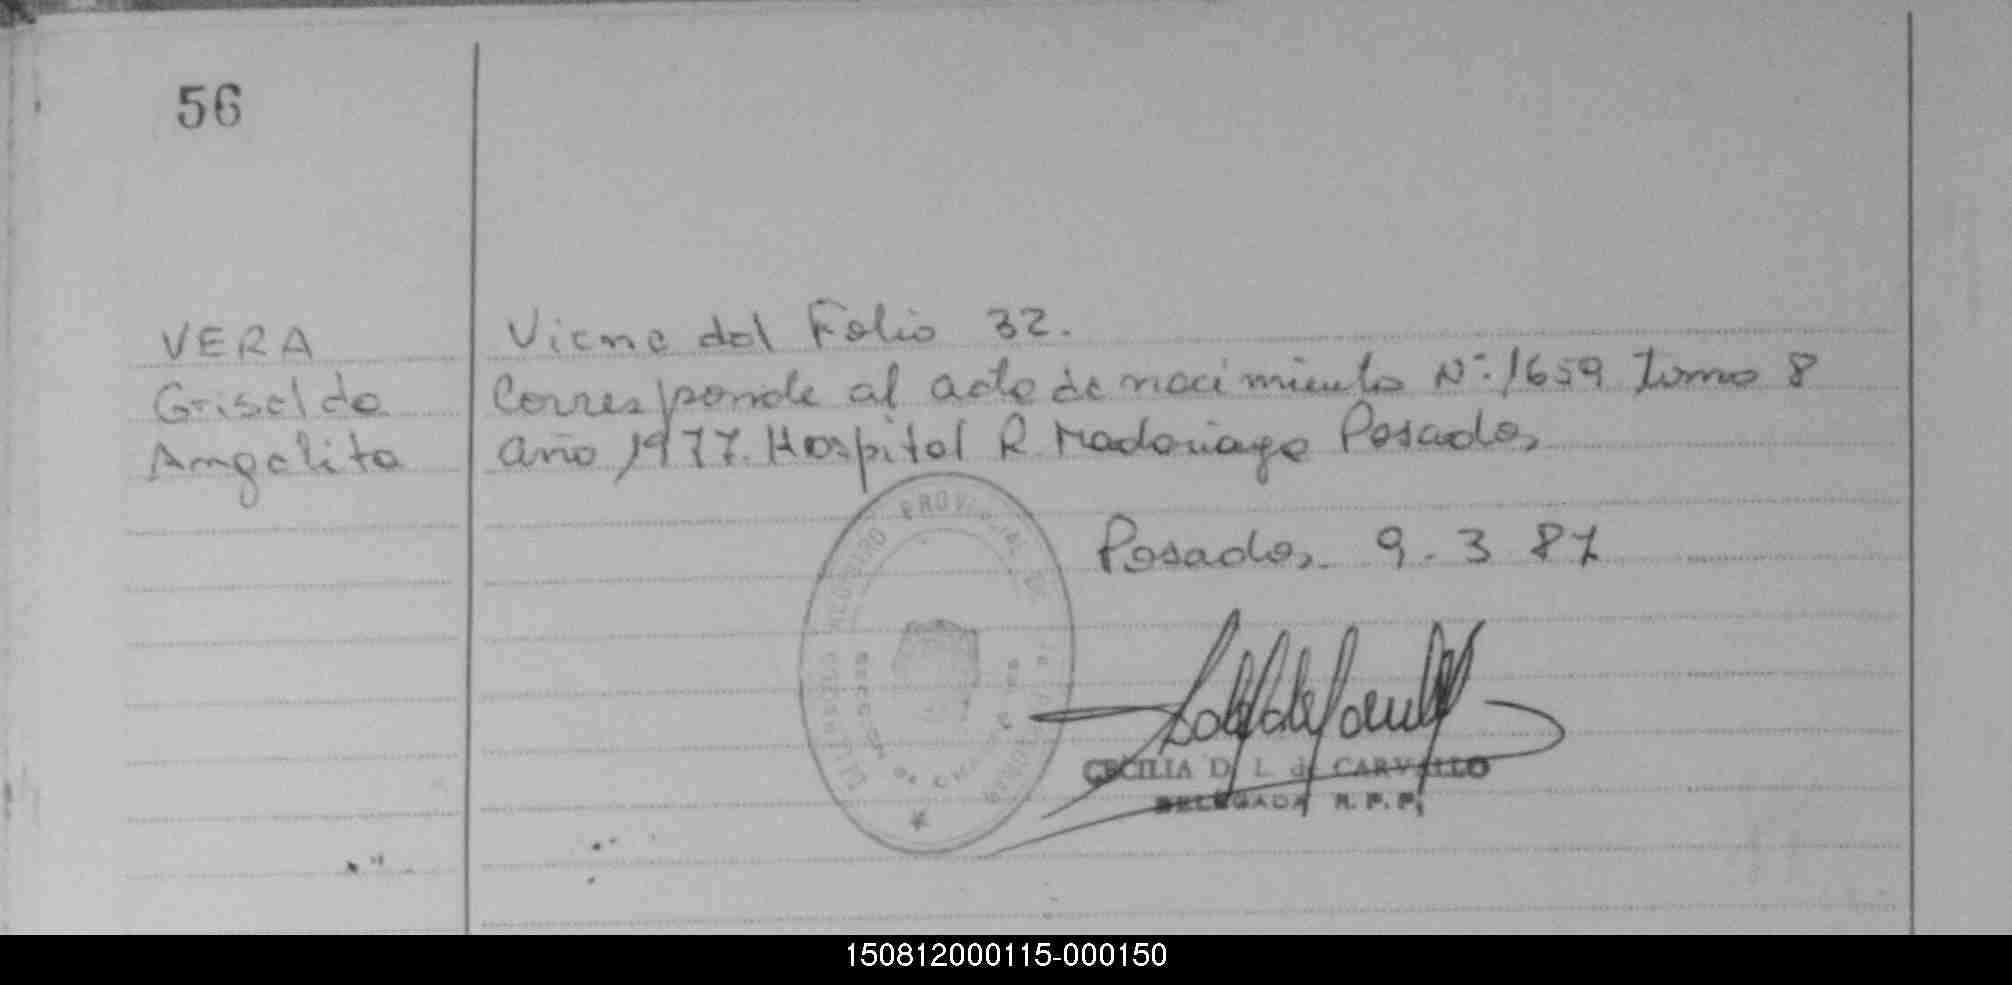 56
VERA
Griselda
Angelita
Viene del Folio 32.
Corresponde al acta de nacimiento Nº 1659 Tomo 8
año 1977. Hospital R. Madariaga Posadas
Posadas, 9.3 87
PROVINCIAL DE
CECILIA D. L. de CARVALLO
DELEGADA R. P. P.
150812000115-000150